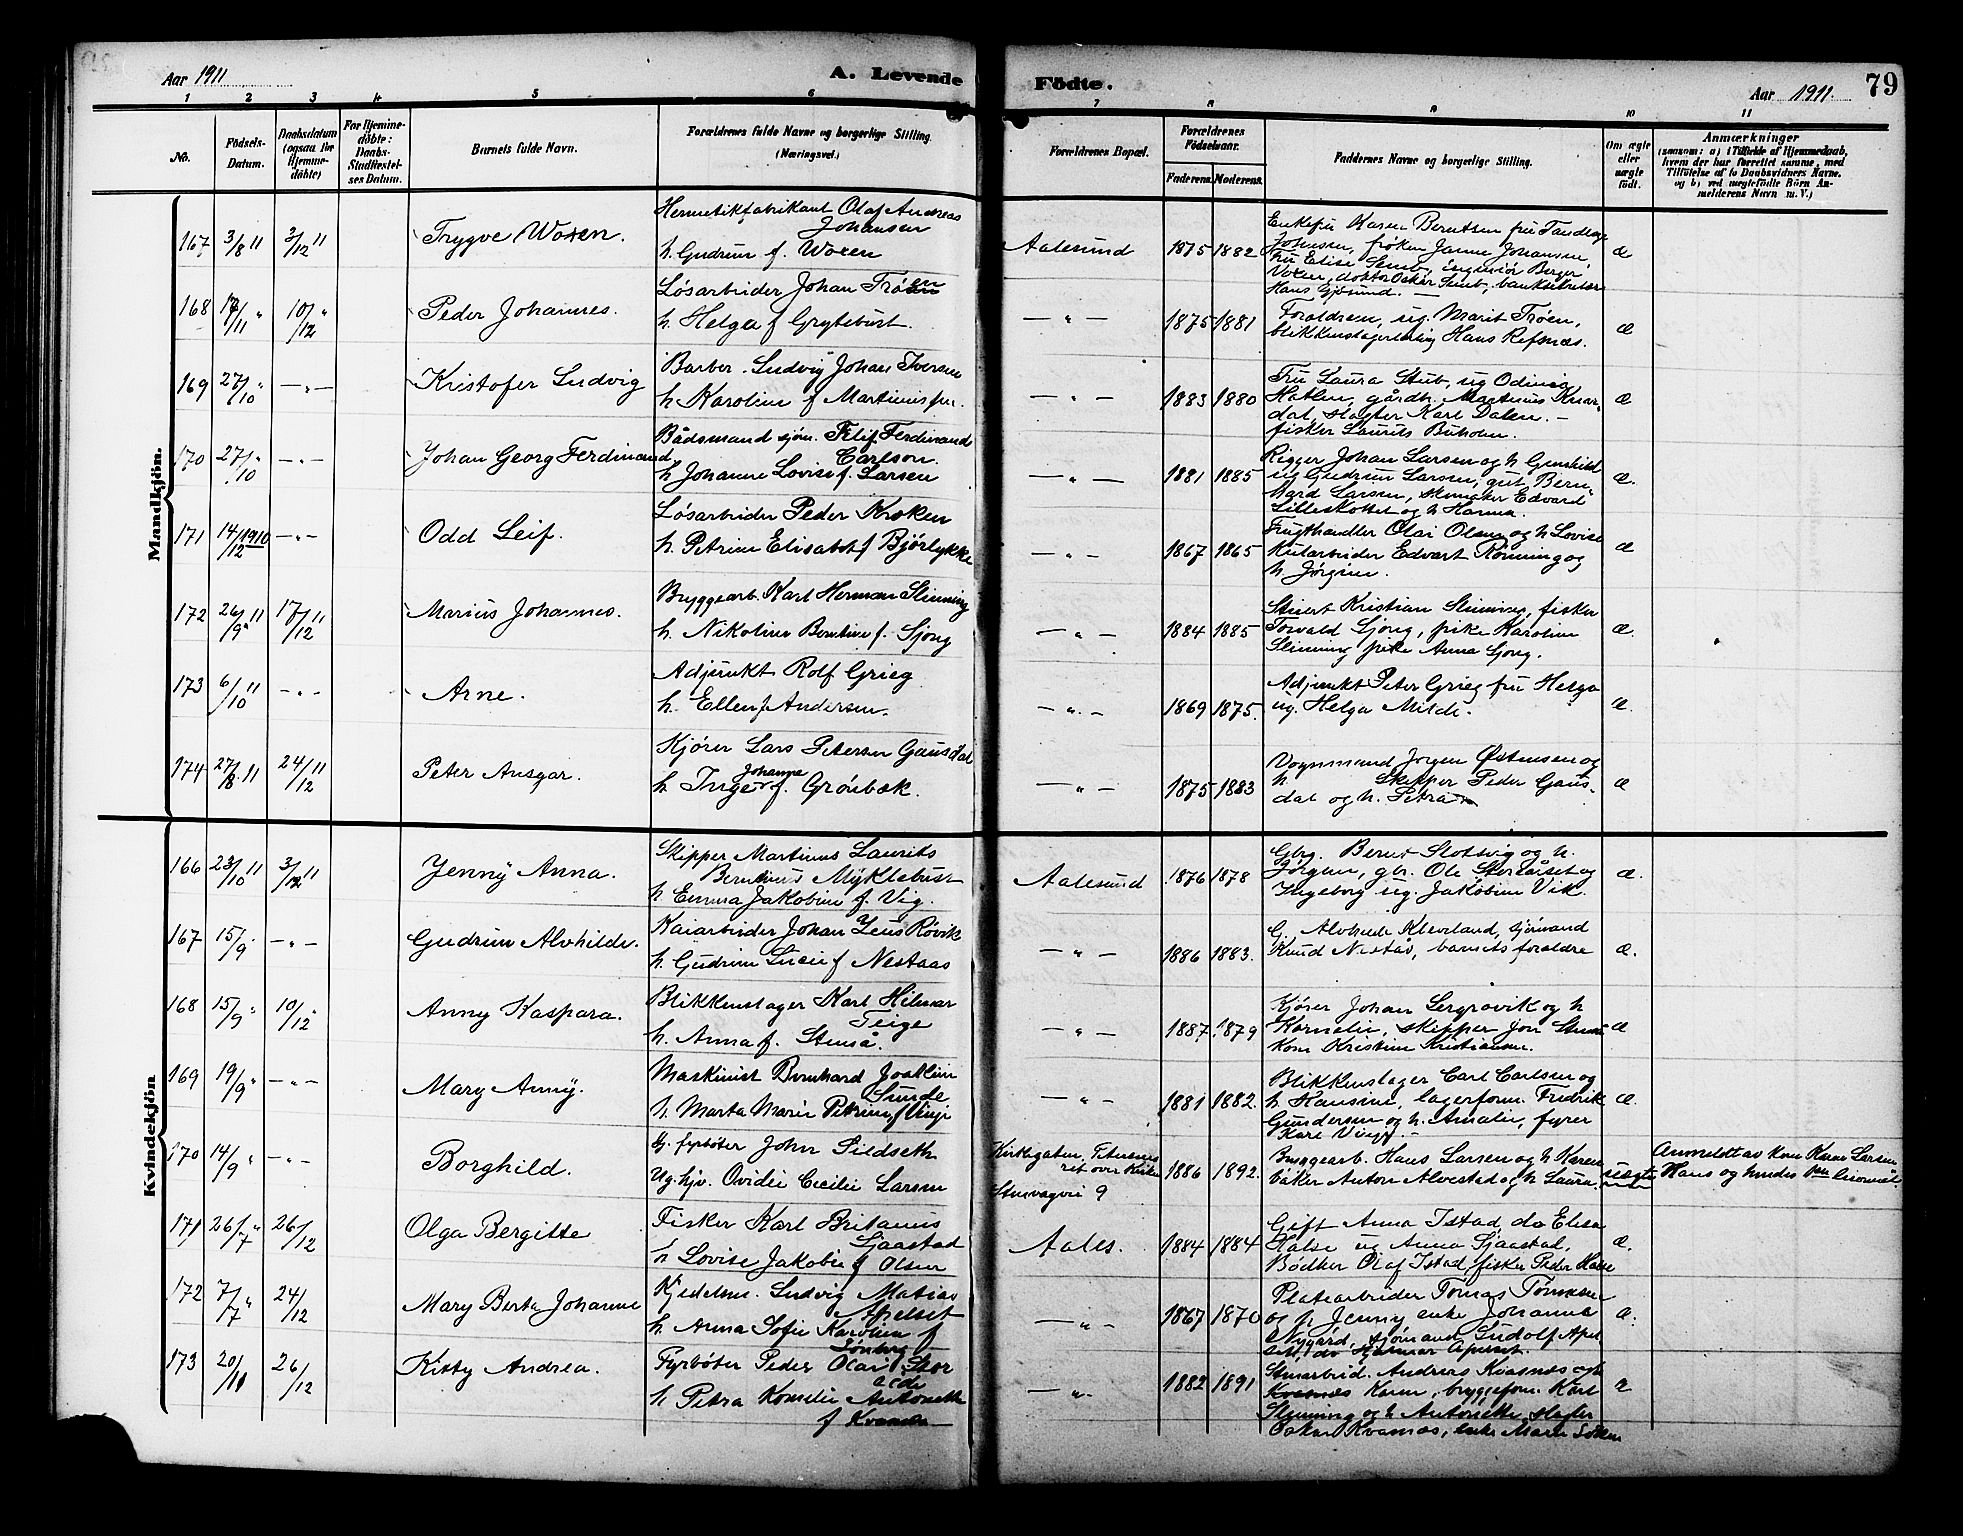 Aar 1911
A. Levende
Födte.
Aar 1911.
79
1 2 3 4 5 6 7 8 9 10 11
No.
Födsels-
Datum.
Daabsdatum
(ogsaa for
Hjemme-
döbte)
For Hjemme-
döbte:
Daabs-
Stadfæstel-
ses Datum.
Barnets fulde Navn.
Forældrenes fulde Navne og borgerlige Stilling.
(Næringsvei.)
Forældrenes Bopæl.
Forældrenes
Födselsaar.
Faderens. Moderens.
Faddernes Navne og borgerlige Stilling.
Om ægte
eller
uægte
födt.
Anmærkninger
(saasom: a) i Tilfælde af Hjemmedaab,
hvem der har forrettet samme, med
Tilföielse af to Daabsvidners Navne.
og b) ved uægtefödte Börn An-
melderens Navn m. V.)
Mandkjön.
167 3/8 11 3/12 11 Trygve Woxen.
Hermetikfabrikant Olaf Andreas
Johansen
h. Gudrun f. Woxen
Aalesund 1875 1882
Enkefru Karen Berntsen fru Tandlæge
Johansen, frøken Janne Johansen,
Fru Elise Semb, ingeniør Berger
Voxen, doktor Oskar Semb, banksekretær
Hans Gjøsund. —
æ
168 17/11 " 10/12 " Peder Johannes.
Løsarbeider Johan Trøen
h. Helga f Grytebust.
— " — 1875 1881
Forældren, ug. Marit Trøen,
blikkenslagerlærling Hans Refsnæs.
æ
169 27/10 " — " — Kristofer Ludvig
Barber. Ludvig Johan Iversen
h. Karoline f Martinusen.
— " — 1883 1880
Fru Laura Stub, ug Odinia
Hatlen, gårdbr. Martinus Knar-
dal, slagter Karl Dalen. —
fisker Laurits Buholm.
æ
170 27/10 " — " — Johan Georg Ferdinand
Bådsmand sjøm. Filif Ferdinand
Carlson.
h Johanne Lovise f. Larsen
— " — 1881 1885
Rigger Johan Larsen og h Gunhild
ug Gudrun Larsen, gut Bern-
hard Larsen, skomaker Edvard
Lilleskottet og h Hanna.
æ.
171 14/12 1910 — " — Odd Leif.
Løsarbeider Peder Kroken
h. Petrine Elisabet f Bjørlykke
— " — 1867 1865
Frugthandler Olai Olsen og h Lovise
Kularbeider Edvart Rønning og
h Jørgine.
æ
172 26/9 11 17/12 11 Marius Johannes.
Bryggearb. Karl Herman Slinning
h. Nikoline Berntine f. Sjong
— " — 1884 1885
Stuert Kristian Slinning, fisker
Torvald Sjong, pike Karoline
Slinning pike Anna Sjong.
æ.
173 6/10 11 — " — Arne.
Adjunkt Rolf Grieg
h. Ellen f Andersen.
— " — 1869 1875.
Adjunkt Peter Grieg fru Helga
ug. Helga Milde.
æ.
174 27/8 11 24/12 11 Peter Ansgar.
Kjører Lars Petersen Gausdal
h. Inger Johanne f. Grønbæk.
— " — 1875 1883
Vognmand Jørgen Østensen og
h Skipper Peder Gaus-
dal og h. Petra
æ
Kvindekjön
166 23/10 11 3/12 11 Jenny Anna.
Skipper Martinus Laurits
Berntinus Myklebust
h Emma Jakobine f. Vig.
Aalesund 1876 1878
Gbrg. Bernt Slotsvig og h.
Jørgine, gbr. Ole Storlåset og
Ingeborg ug. Jakobine Vik
æ.
167 15/9 " — " — Gudrun Alvhilde.
Kaiarbeider Johan Jens Røvik
h. Gudrun Lucie f Nestaas
— " — 1886 1883.
G. Alvhilde Kleveland, sjømand
Knud Nestås, barnets foraldre
æ.
168 15/9 " 10/12 " Anny Kaspara.
Blikkenslager Karl Hilmar
Teige
h. Anna f. Stenså.
— " — 1887. 1879
Kjører Johan Sergrovik og h
Kornelie, skipper Jon
Kone Kristine Kristiansen.
æ
169 19/9 " — " — Mary Anny.
Maskinist Bernhard Joakim
Sunde
h. Marta Marie Petrine f Vinje
— " — 1881 1882.
Blikkenslager Carl Carlsen og
h Hansine, lagerform. Fredrik
Gundersen og h. Amalie, fyrer
Karl Vinje. —
æ.
170 14/9 " — " — Borghild.
G. fyrbøter John Sildseth
Ug. hjv. Ovidie Cecilie Larsen
Kirkegaten, Petersens
ret over Kirken
Storvagvei 9
1886 1892.
Bryggearb. Hans Larsen og h Karen
bæker Anton Alvestad og h Laura.
uægte
Anmeldt av kone Karen Larsen
Hans og hendes
171 26/7 " 26/12 Olga Bergitte
Fisker Karl Britanus
Sjaastad
h Lovise Jakobine f Olsen
Aales. 1884 1884
Gift Anna Istad, do Elisa
Halse ug Anna Sjaastad,
Bødker Olaf Istad, fisker Peder Halse
æ.
172 7/7 " 24/12 Mary Berta Johanne
Kjedelsm. Ludvig Matias
Apelset
h. Anna Sofie Karoline f
Tønberg
— " — 1867 1870
Platearbeider Tomas Tømmesen
og h Jenny enke Johanna
Nygård, sjømand Ludolf Apel-
set, do Hjalmar Apelset.
æ.
173 20/11 26/12 Kitty Andrea.
Fyrbøter Peder Olai Stor
eide
h Petra Kornelie Antonette
f Kvasnes
— " — 1882 1891
Stuearbeid. Andreas Kvasnes og h
Karen, bryggeform. Karl
Slinning og h Antonette, slagter
Oskar Kvasnes, enke Marie Solem
æ